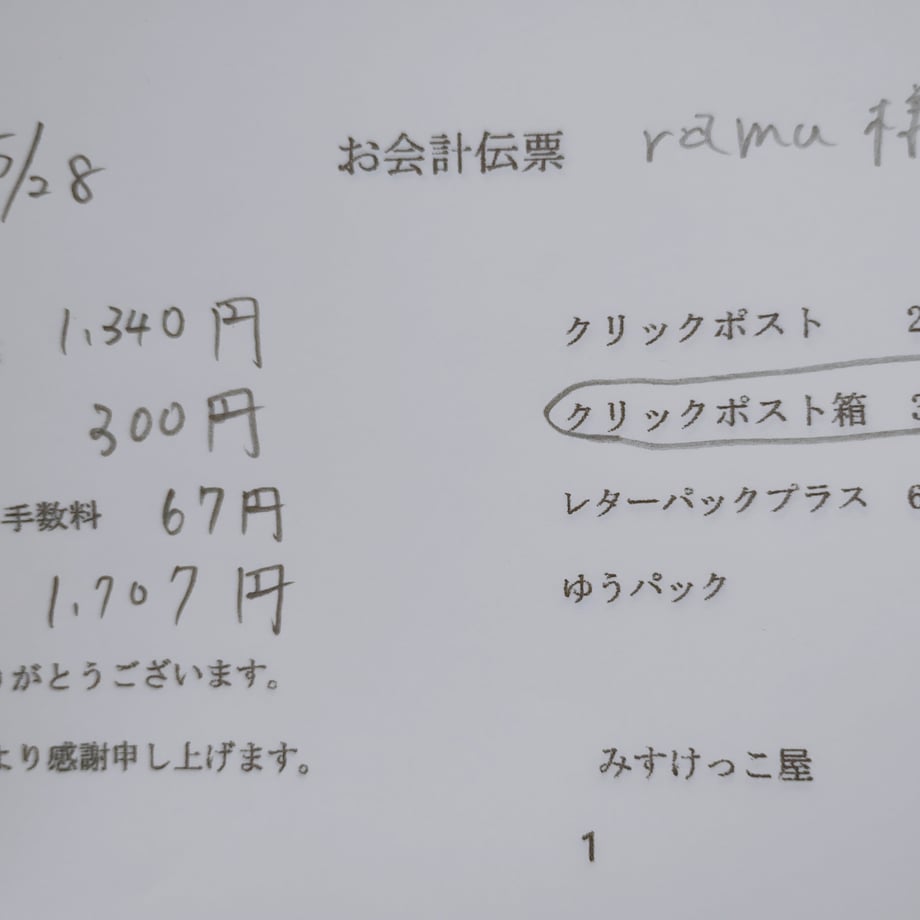 5/28 お会計伝票 rama 様
1,340円 クリックポスト 2
300円 クリックポスト箱 3
手数料 67円 レターパックプラス 6
1,707円 ゆうパック
りがとうございます。
より感謝申し上げます。
みすけっこ屋
1